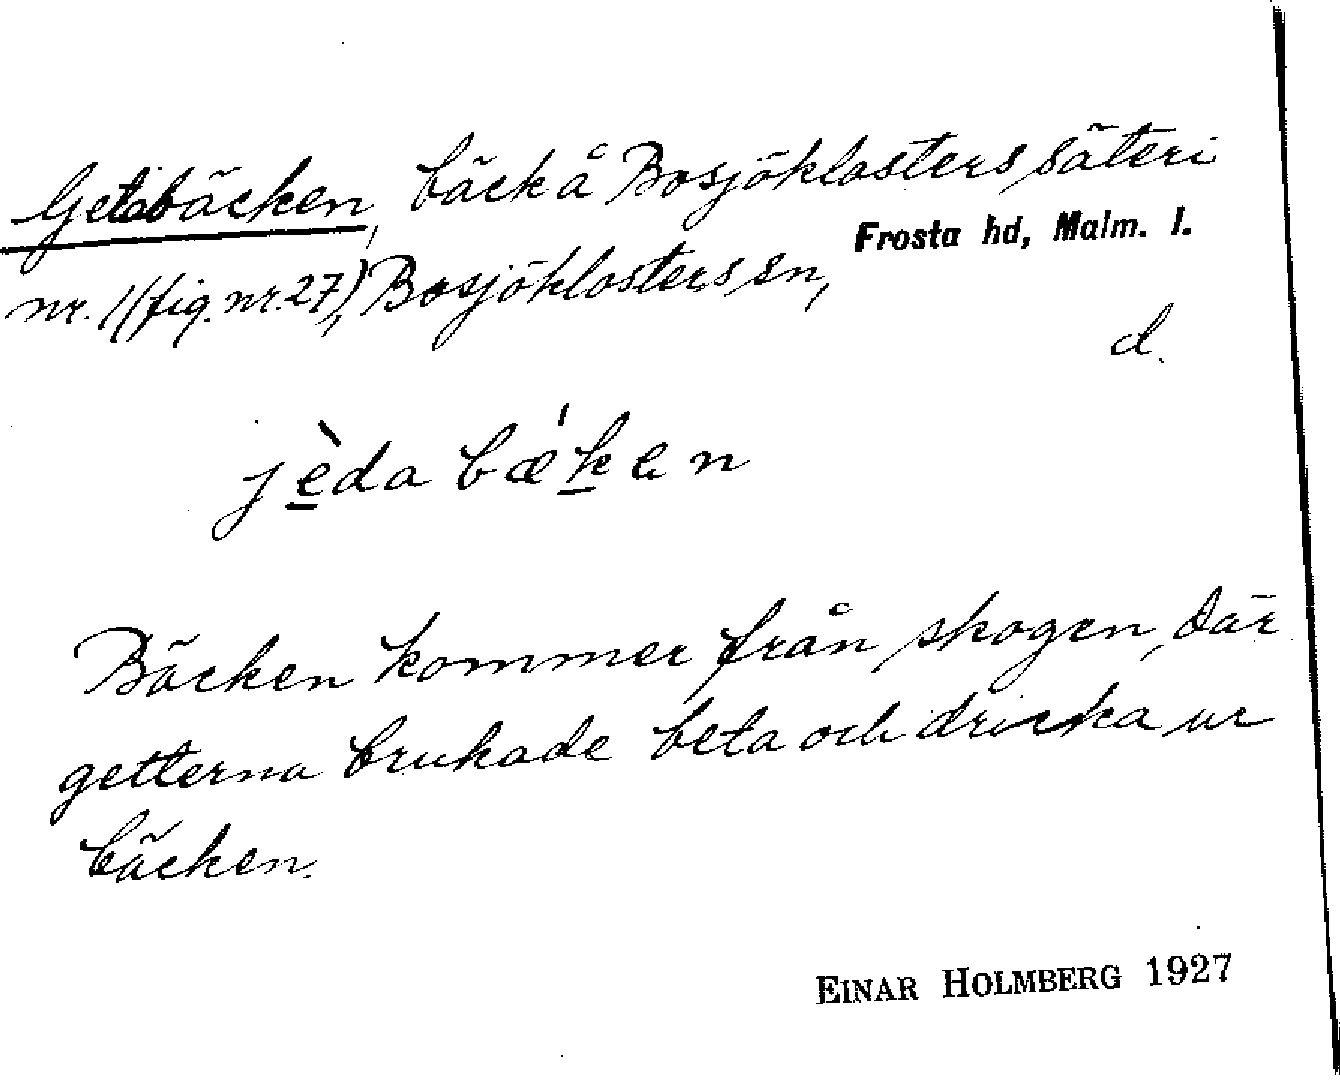 Getabäcken, bäck å Bosjöklosters säteri
nr. 1 (fig. nr. 27), Bosjöklosters sn, Frosta hd, Malm. l.
d.
jèda bǽken
Bäcken kommer från skogen, där
getterna brukade beta och dricka ur
bäcken.
EINAR HOLMBERG 1927